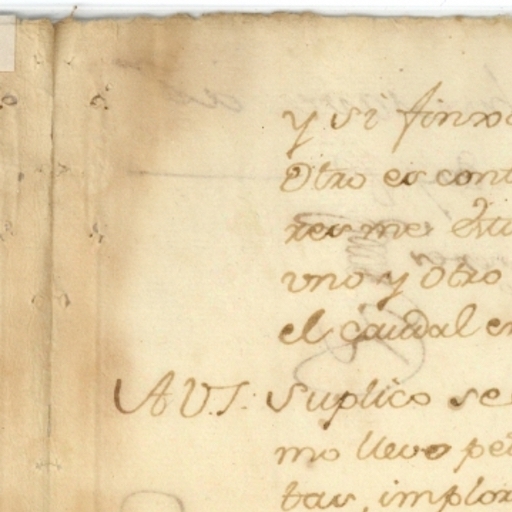 y si
Otro es cont
res me
uno y Otro
el caudal en
A V.S. Suplico se
mo llevo pe
tar, implor